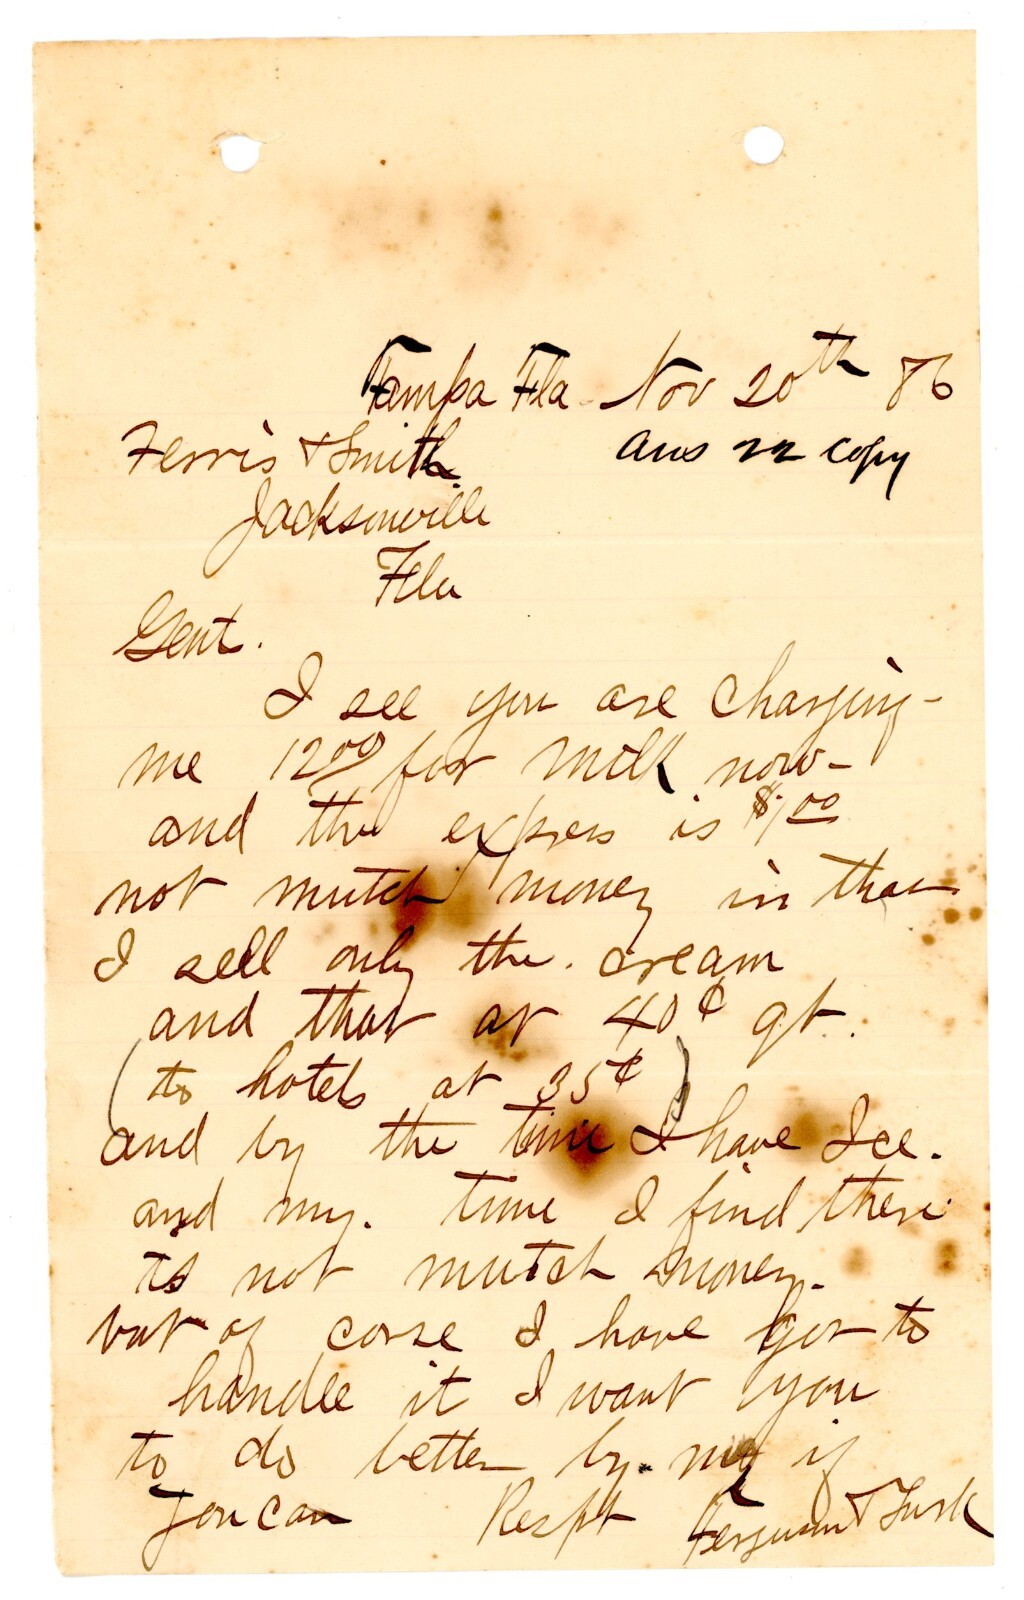 Tampa Fla Nov 20th 86
Ferris & Smith
ans 22 copy
Jacksonville
Fla
Gent.
I see you are charging
me 12 00 for milk now
and the expres is $1.00
not mutch money in that
I sell only the cream
and that at 40¢ qt.
(to hotels at 35¢)
and by the time I have Ice.
and my. time I find there
is not mutch money.
but of corse I have got to
handle it I want you
to do better by me if
you can Respt Ferguson & Turk